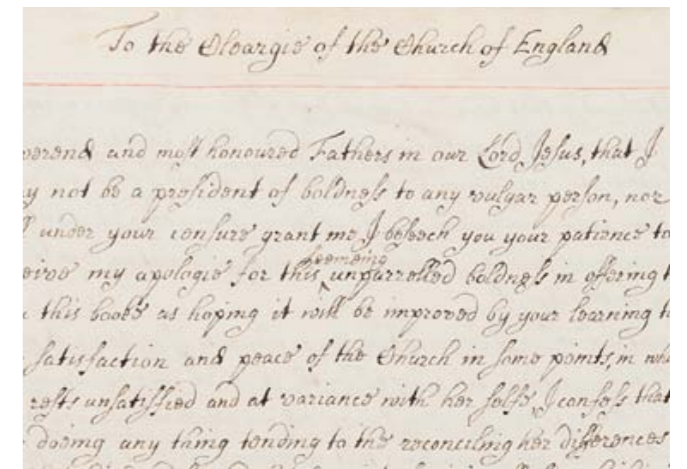 To the Cleargie of the Church of England
verend and most honoured Fathers in our Lord Jesus, that I
y not be a president of boldness to any vulgar person, nor
under your censure grant me I beseech you your patience to
eive my apologie for this unparrelled boldness in offering
seemeing
this booke as hoping it will be improved by your learning to
satisfaction and peace of the Church in some points, in
rests unsatisfied and at variance with her selfe, I confess that
doeing any thing tending to the reconciling her differences